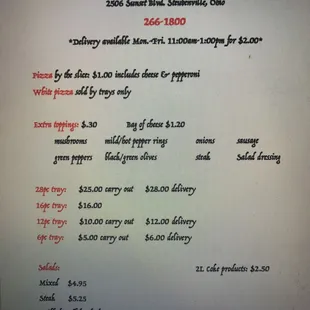 2506 Sunset Blvd. Steubenville, Ohio
266-1800
*Delivery available Mon.-Fri. 11:00am-1:00pm for $2.00*
Pizza by the slice: $1.00 includes cheese & pepperoni
White pizza sold by trays only
Extra toppings: $.30 Bag of cheese $1.20
mushrooms mild/hot pepper rings onions sausage
green peppers black/green olives steak Salad dressing
28pc tray: $25.00 carry out $28.00 delivery
16pc tray: $16.00
12pc tray: $10.00 carry out $12.00 delivery
6pc tray: $5.00 carry out $6.00 delivery
Salads: 2L Coke products: $2.50
Mixed $4.95
Steak $5.25